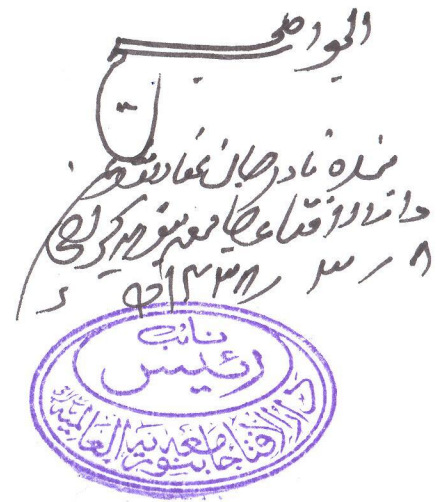 الجواب صحیح
بندہ نادر جان عفا اللہ عنہ
دارالافتاء جامعہ بنوریہ کراچی
۸ / ۳ / ۱۴۳۸ھ
نائب
رئیس
دارالافتا جامعہ بنوریہ العالمیۃ